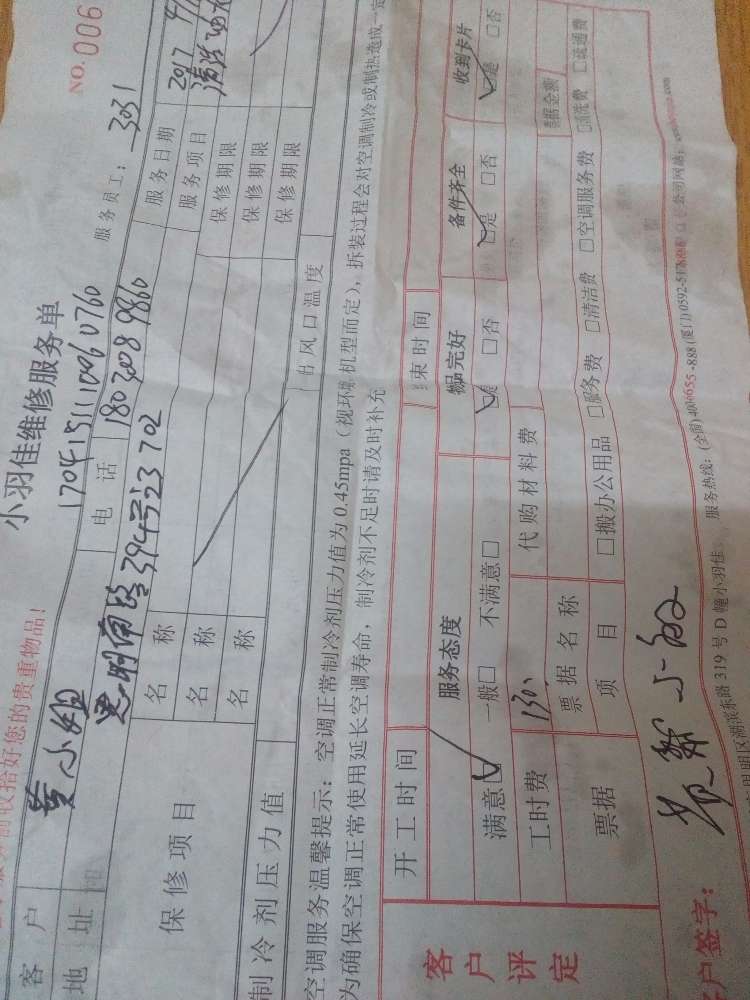 收拾好您的贵重物品！
小羽佳维修服务单
NO. 006
1704151110060760
服务员工：3031
客户 黄小姐 电话 18030089860 服务日期 2017
地址 思明南路394号23702 服务项目 清洗
保修项目
名称 保修期限
名称 保修期限
名称 保修期限
制冷剂压力值 出风口温度
空调服务温馨提示：空调正常制冷剂压力值为0.45mpa（视环 机型而定），拆装过程会对空调制冷或制热造成一定
为确保空调正常使用延长空调寿命，制冷剂不足时请及时补充
客户评定
开工时间 束时间
服务态度 物品完好 备件齐全 收到卡片
满意□ 一般□ 不满意□ □是 □否 □是 □否 □是 □否
工时费 130. 代购材料费
票据 票据名称 票据金额
项目 □搬办公用品 □服务费 □清洁费 □空调服务费 □清洗费 □疏通费
户签字：
思明区湖滨东路319号D幢小羽佳 服务热线：(全国) 400 655-888 (厦门) 0592-51 公司网站：